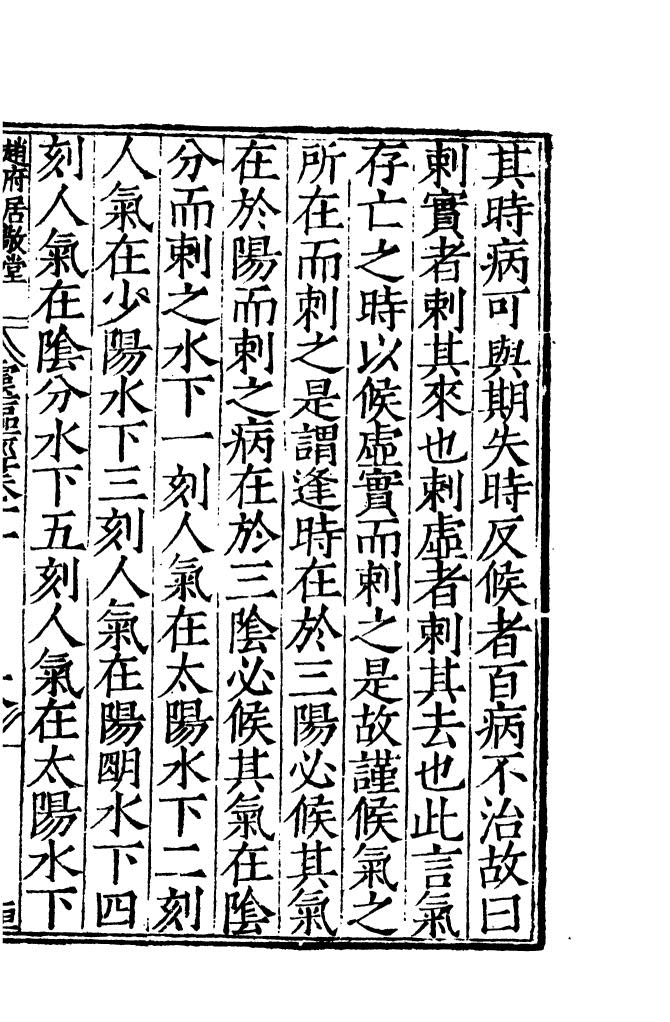 其時病可與期失時反候者百病不治故曰
刺實者刺其來也刺虛者刺其去也此言氣
存亡之時以候虛實而刺之是故謹候氣之
所在而刺之是謂逢時在於三陽必候其氣
在於陽而刺之病在於三陰必候其氣在陰
分而刺之水下一刻人氣在太陽水下二刻
人氣在少陽水下三刻人氣在陽明水下四
刻人氣在陰分水下五刻人氣在太陽水下
趙府居敬堂